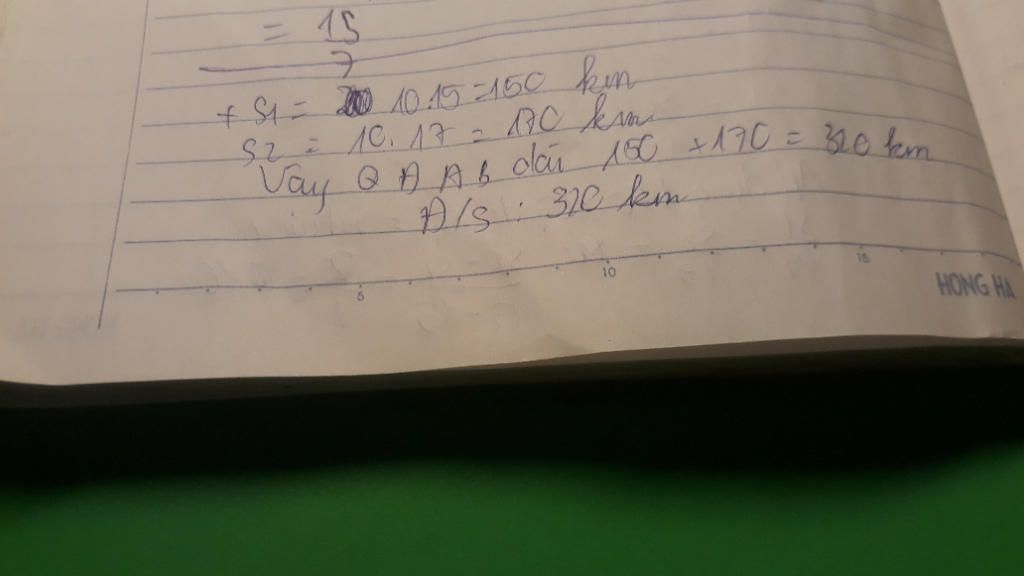 = 15
7
+ S1 = 10.15 = 150 km
S2 = 10.17 = 170 km
Vậy QĐ AB dài 150 + 170 = 320 km
Đ/S : 320 km
5 10 15
HONG HA